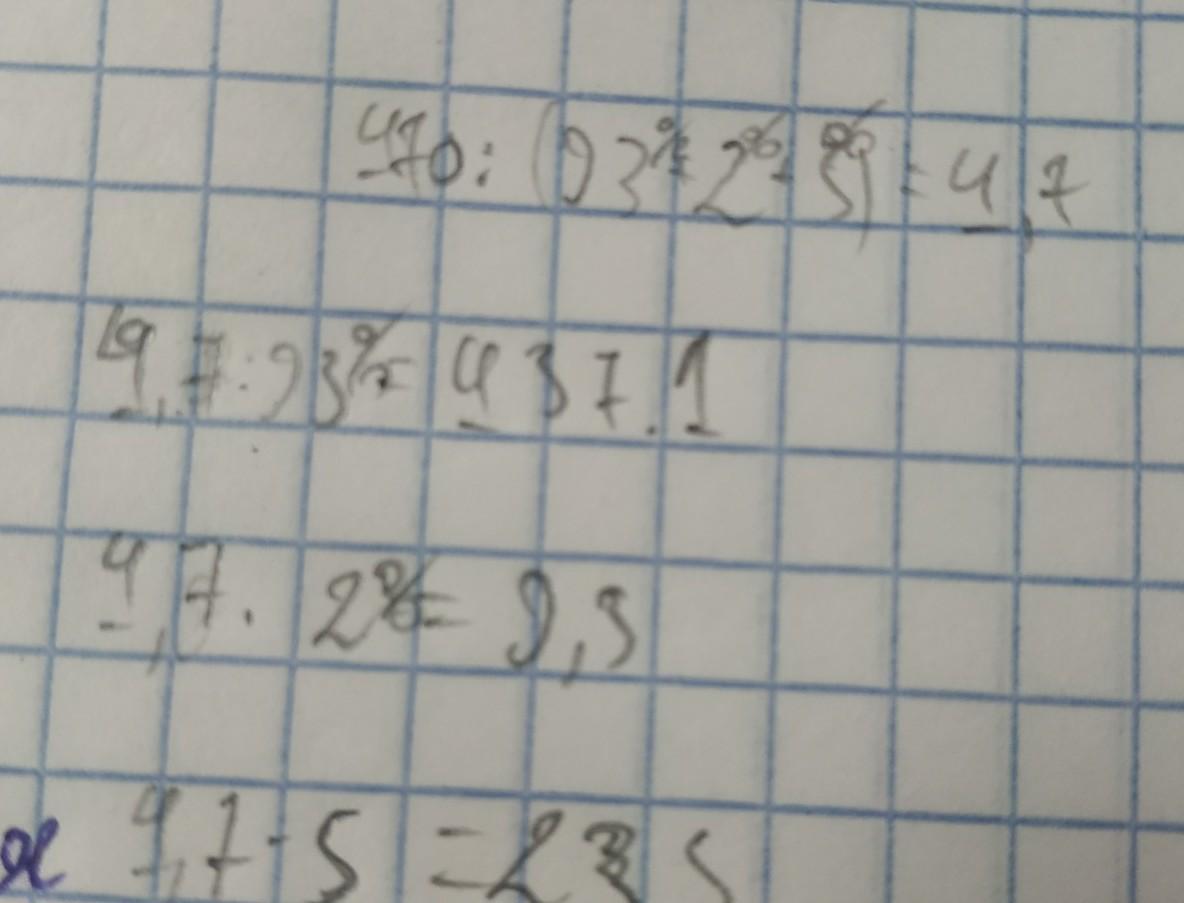 470:(93%+2%+5%)=4,7
4,7·93%=437.1
4,7·2%=9,3
4,7·5=23 5